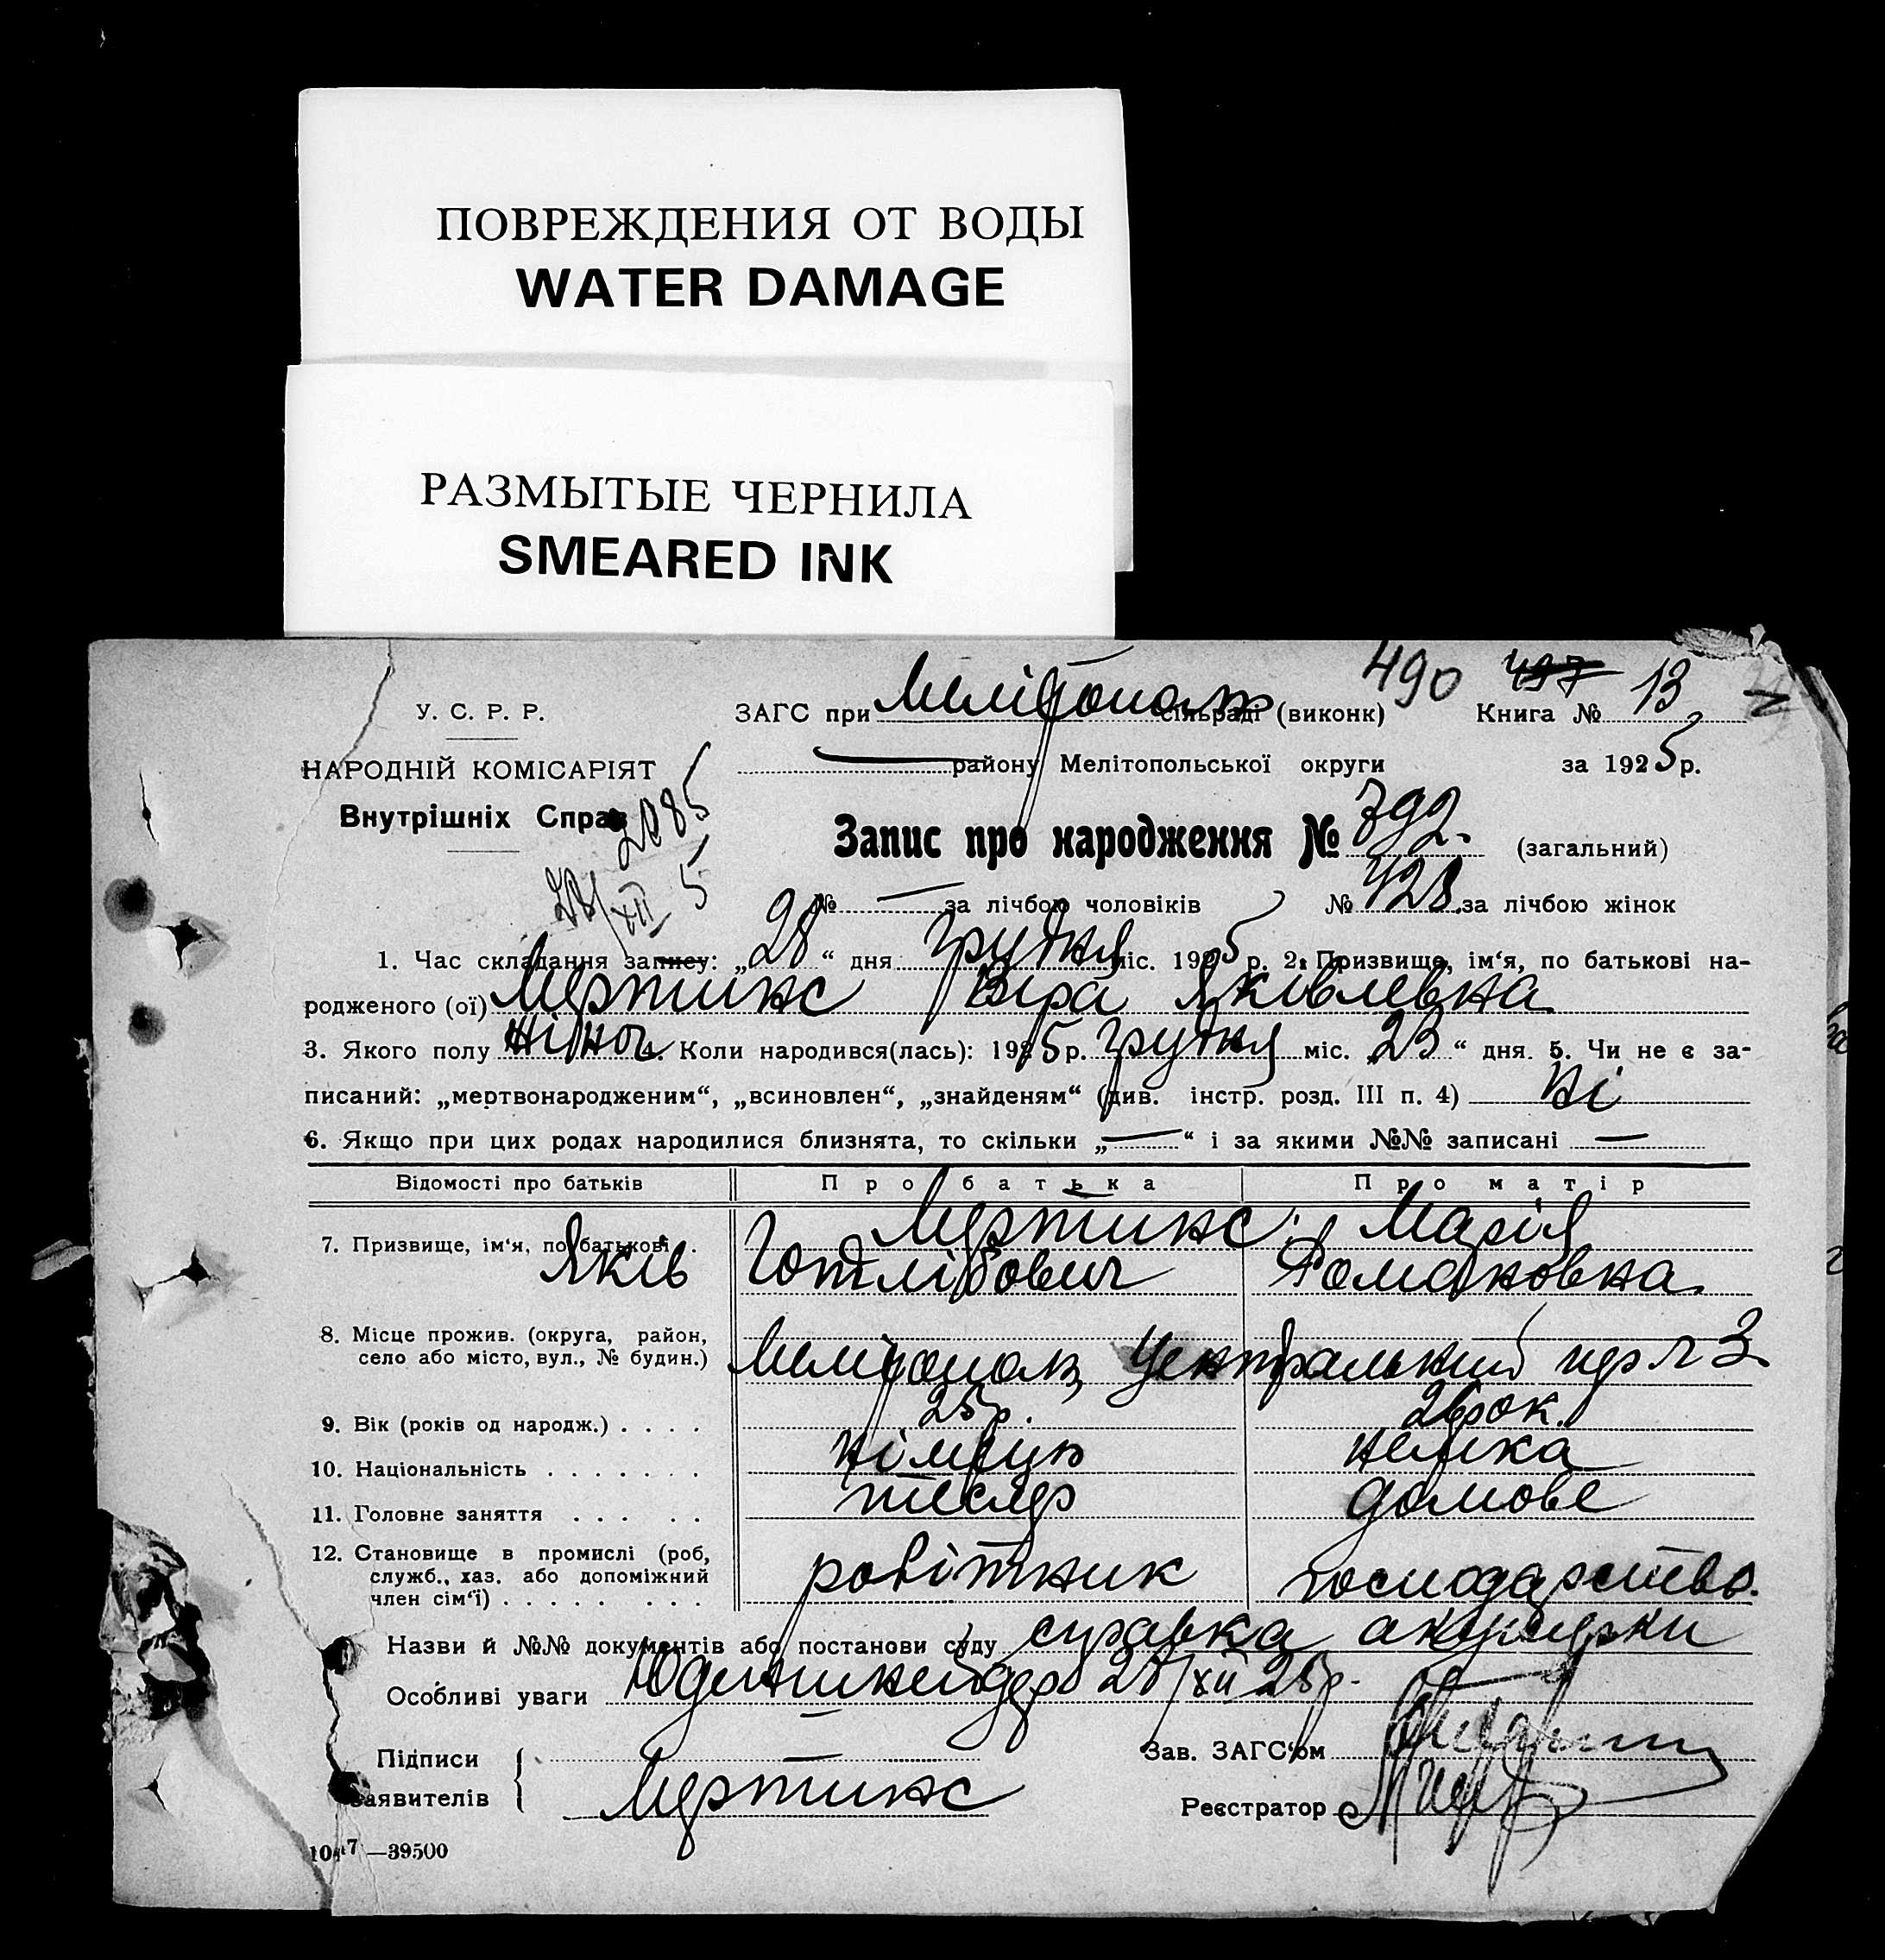 ПОВРЕЖДЕНИЯ ОТ ВОДЫ
WATER DAMAGE
РАЗМЫТЫЕ ЧЕРНИЛА
SMEARED INK
490 497 13
У. С. Р. Р.
ЗАГС при Мелітополь сільраді (виконк) Книга №
НАРОДНІЙ КОМІСАРІЯТ
району Мелітопольської округи за 1925 р.
Внутрішніх Справ
2085
Запис про народження № 792. (загальний)
28/XII 5
№ — за лічбою чоловіків № 428 за лічбою жінок
1. Час складання запису: „28“ дня грудня міс. 1925 р. 2. Призвище, ім‘я, по батькові на-
родженого (ої) Мертинс Віра Яковлевна
3. Якого полу жіноч 4. Коли народився(лась): 1925 р. грудня міс. 23“ дня. 5. Чи не є за-
писаний: „мертвонародженим“, „всиновлен“, „знайденям“ (див. інстр. розд. III п. 4) ні
6. Якщо при цих родах народилися близнята, то скільки „—“ і за якими №№ записані —
Відомості про батьків Про батька Про матір
7. Призвище, ім‘я, по батькові . Мертинс Марія
Яків Готлібович Романовна
8. Місце прожив. (округа, район,
село або місто, вул., № будин.) Мелітополь, Центральний 3
9. Вік (років од народж.) . . . . 25 р. 26 рок.
10. Національність . . . . . . . німець немка
11. Головне заняття . . . . . тесляр домове
12. Становище в промислі (роб,
служб., хаз. або допоміжний
член сім‘ї) . . . . . . . . робітник господарство.
Назви й №№ документів або постанови суду справка акушерки
Особливі уваги 28/XII 25 р.
Підписи
заявителів Мертинс
Зав. ЗАГС‘ом
Реєстратор
—39500